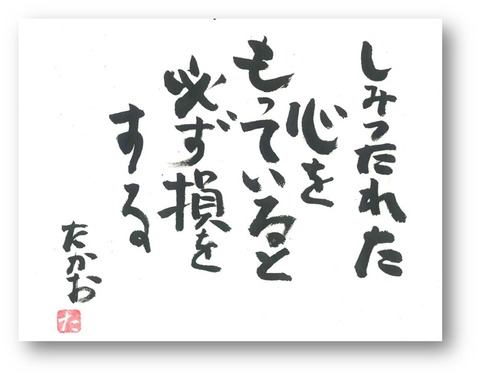 しみったれた
心を
もっていると
必ず損を
する
たかお
た